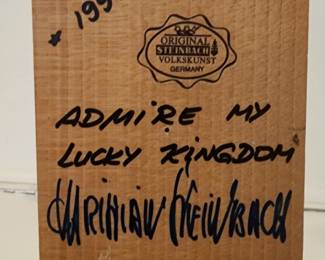 # 199
ORIGINAL
STEINBACH
VOLKSKUNST
GERMANY
ADMIRE MY
LUCKY KINGDOM
Steinbach